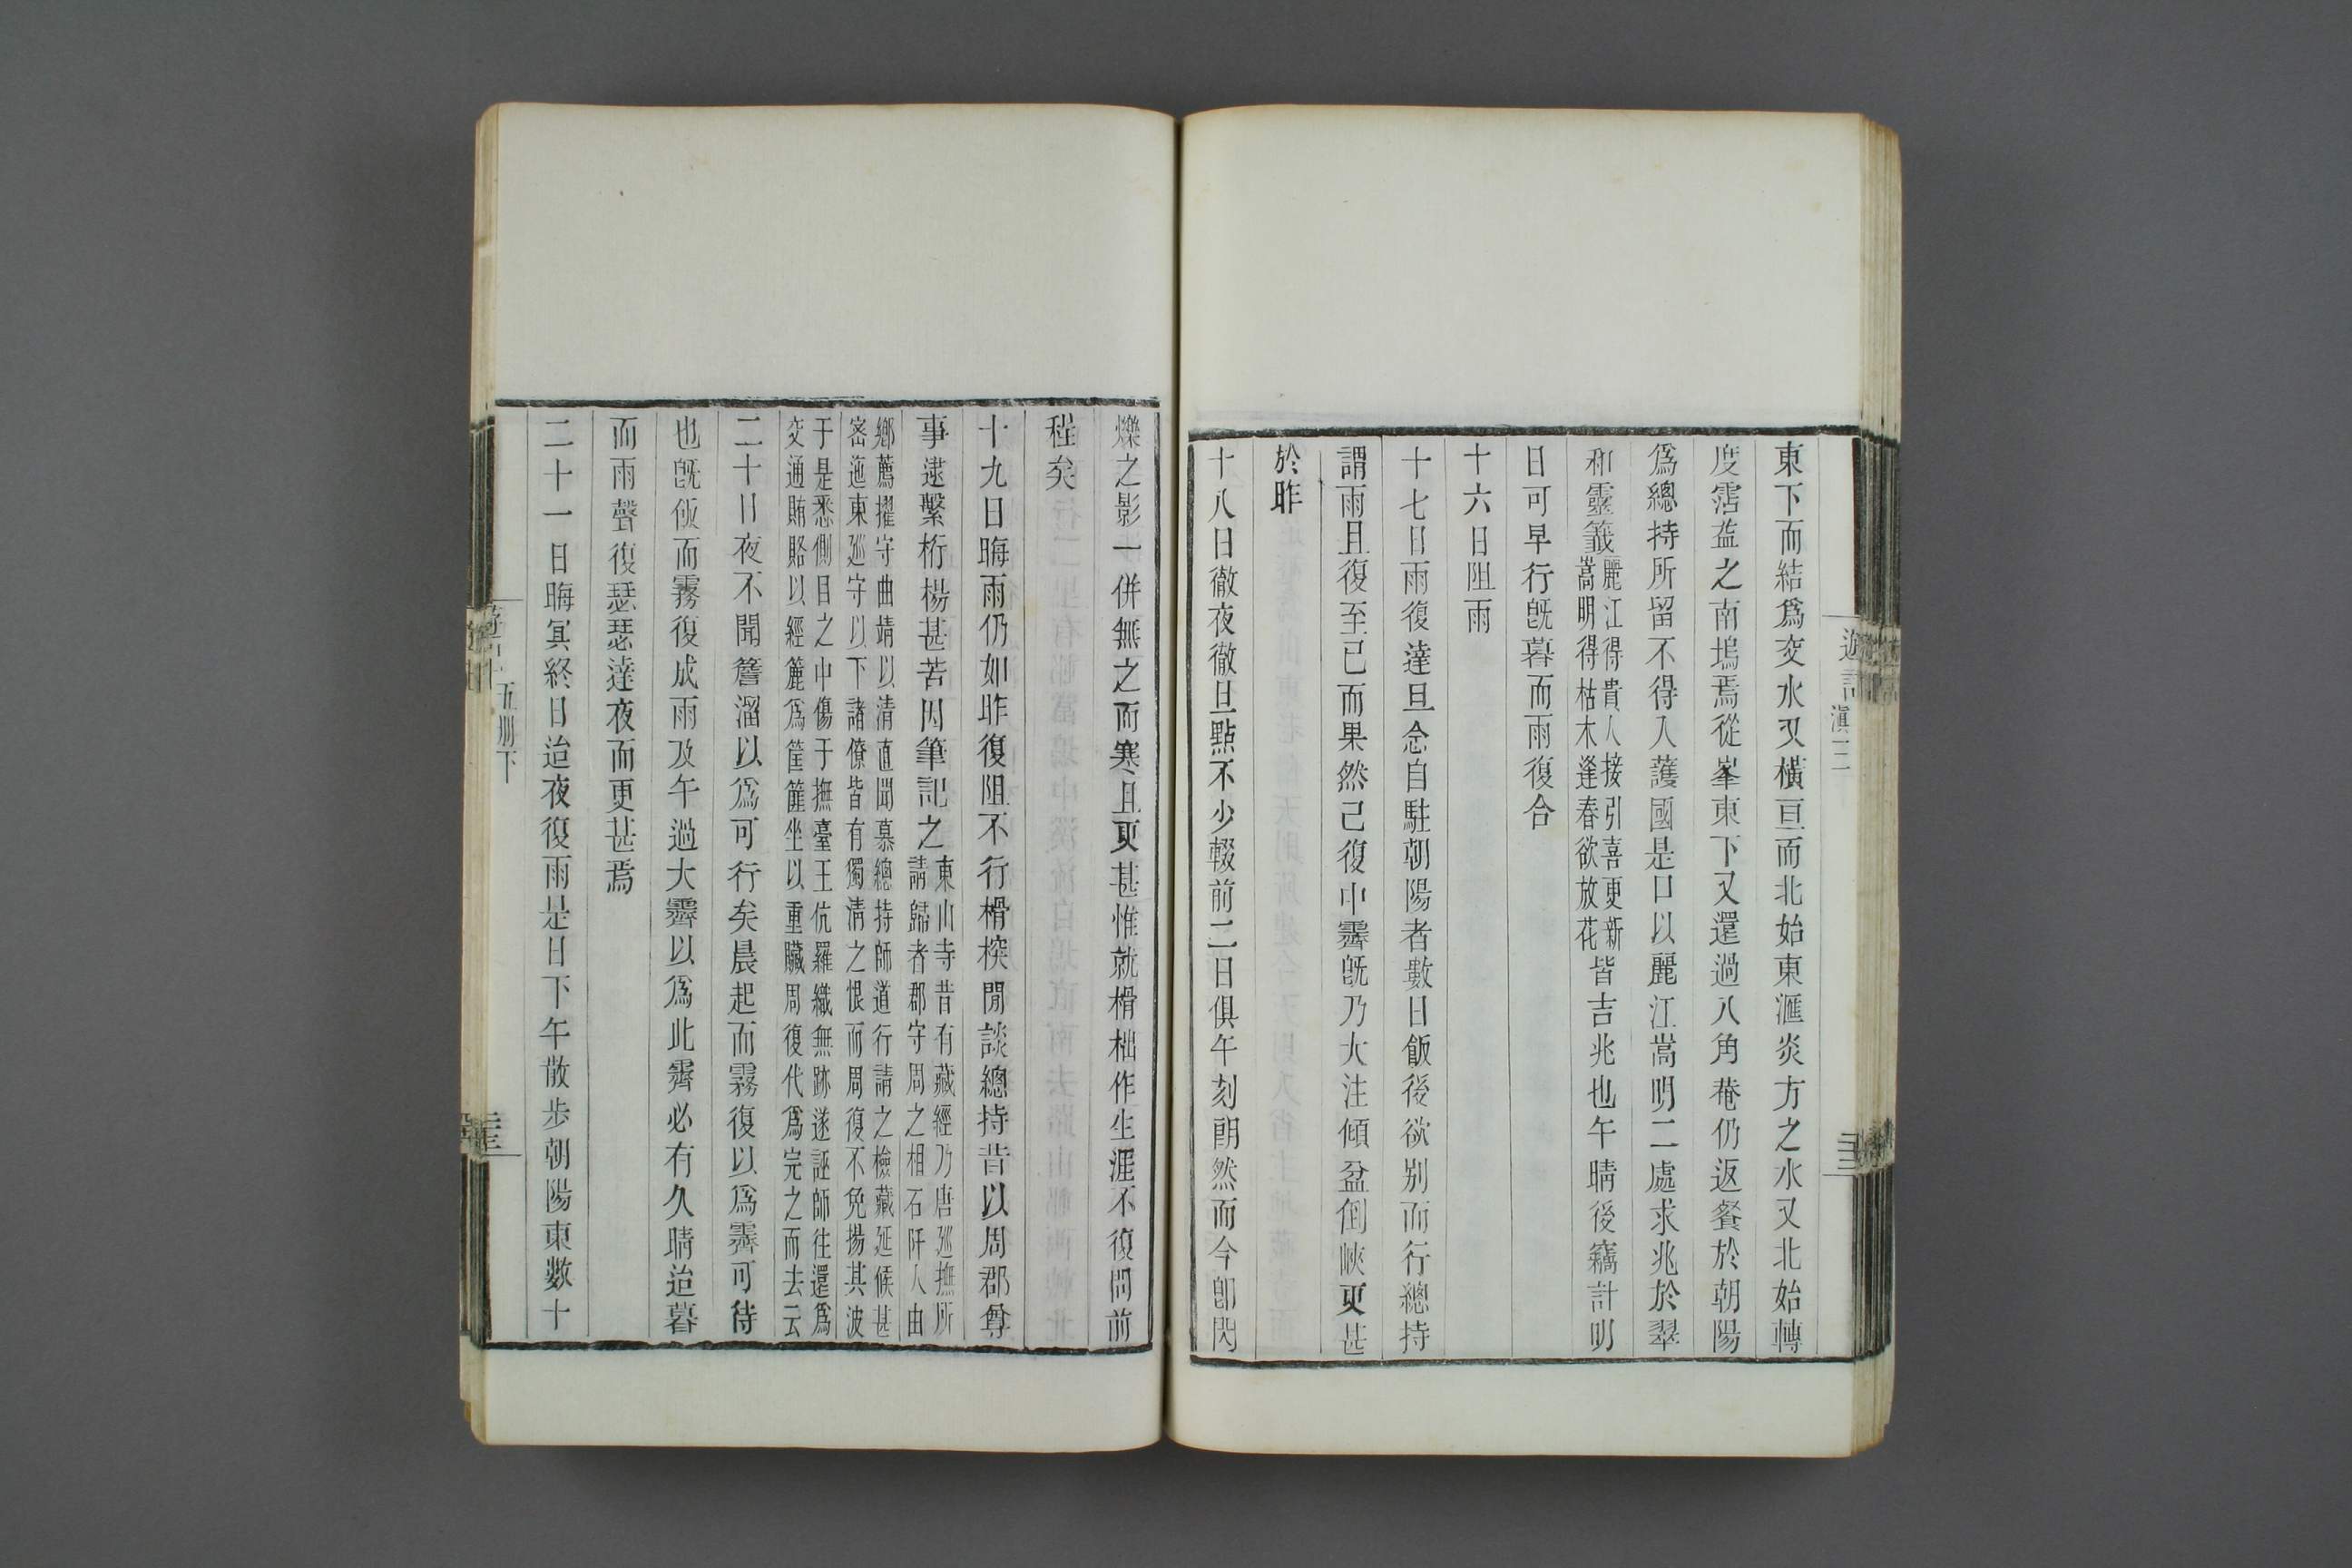 東下而結爲交水又橫亘而北始東滙炎方之水又北始轉
度霑益之南塢焉從峯東下又還過八角菴仍返餐於朝陽
爲總持所留不得入護國是日以麗江嵩明二處求兆於翠
和靈籤麗江得貴人接引喜更新嵩明得枯木逢春欲放花皆吉兆也午晴後竊計明
日可早行旣暮而雨復合
十六日阻雨
十七日雨復達旦念自駐朝陽者數日飯後欲別而行總持
謂雨且復至已而果然已復中霽旣乃大注傾盆倒峽更甚
於昨
十八日徹夜徹旦點不少輟前二日俱午刻朗然而今卽閃
爍之影一併無之而寒且更甚惟就榾柮作生涯不復問前
程矣
十九日晦雨仍如昨復阻不行榾榾閒談總持昔以周郡尊
事逮繫桁楊甚苦因筆記之東山寺昔有藏經乃唐巡撫所請歸者郡守周之相石阡人由
鄉薦擢守曲靖以清直聞慕總持師道行請之檢藏延候甚密迤東巡守以下諸僚皆有獨清之恨而周復不免揚其波
于是悉側目之中傷于撫臺王伉羅織無跡遂誣師往還爲交通賄賂以經簏爲筐篚坐以重贓周復代爲完之而去云
二十日夜不聞簷溜以爲可行矣晨起而霧復以爲霽可待
也旣飯而霧復成雨及午過大霽以爲此霽必有久晴迨暮
而雨聲復瑟瑟達夜而更甚焉
二十一日晦冥終日迨夜復雨是日下午散步朝陽東數十
遊記
滇二
五册下